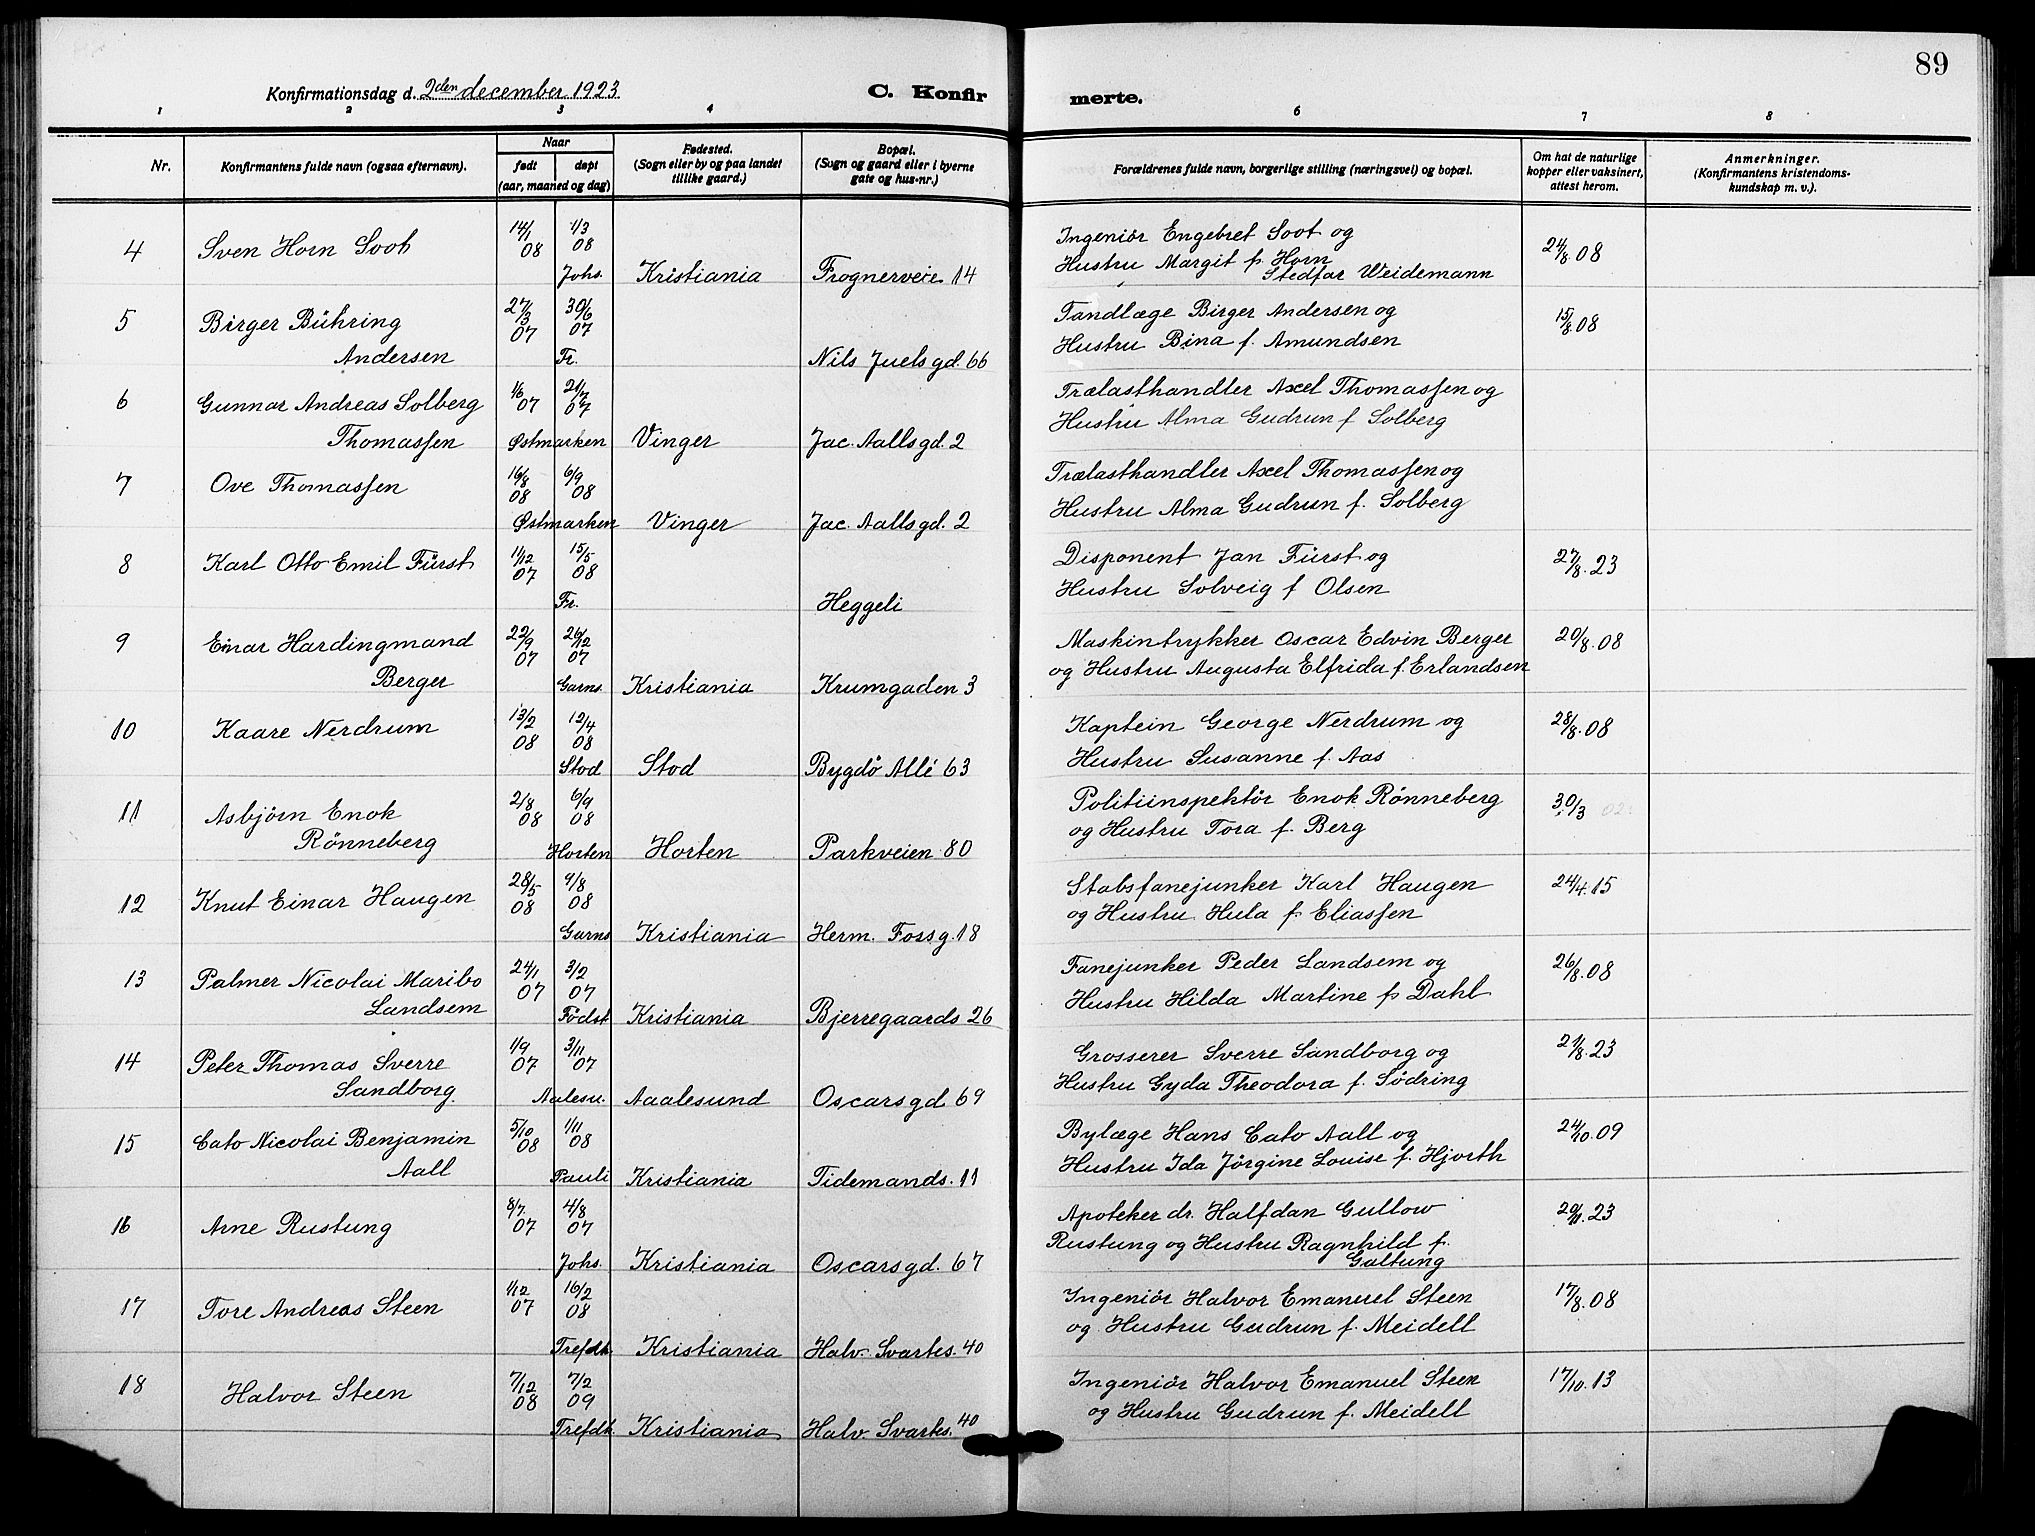 89
Konfirmationsdag d. 2den december 1923
C. Konfir
merte.
1 2 3 4 6 7 8
Nr.
Konfirmantens fulde navn (ogsaa efternavn).
Naar
født
døpt
(aar, maaned og dag)
Fødested.
(Sogn eller by og paa landet
tillike gaard.)
Bopæl.
(Sogn og gaard eller i byerne
gate og hus-nr.)
Forældrenes fulde navn, borgerlige stilling (næringsvei) og bopæl.
Om hat de naturlige
kopper eller vaksinert,
attest herom.
Anmerkninger.
(Konfirmantens kristendoms-
kundskap m. v.)
4 Sven Horn Soot 14/1 08 1/3 08 Ingeniör Engebret Soot og 24/8.08
Johs. Kristiania Frognerveie 14 Hustru Margit f. Horn
Stedfar Weidemann
5 Birger Bühring 27/3 07 30/6 07 Tandlæge Birger Andersen og 15/8.08
Andersen Fr. Nils Juels gd. 66 Hustru Bina f. Amundsen
6 Gunnar Andreas Solberg 1/6 07 21/7 07 Trælasthandler Axel Thomassen og
Thomassen Østmarken Vinger Jac. Aalls gd. 2 Hustru Alma Gudrun f Solberg
7 Ove Thomassen 16/8 08 6/9 08 Trælasthandler Axel Thomassen og
Østmarken Vinger Jac. Aalls gd. 2 Hustru Alma Gudrun f. Solberg
8 Karl Otto Emil Fürst 11/12 07 15/5 08 Disponent Jan Fürst og 27/8.23
Fr. Heggeli Hustru Solveig f Olsen
9 Einar Hardingmand 22/9 07 26/12 07 Maskintrykker Oscar Edvin Berger 20/8.08
Berger Garns. Kristiania Krumgaden 3 og Hustru Augusta Elfrida f. Erlandsen
10 Kaare Nerdrum 13/2 08 12/4 08 Kaptein George Nerdrum og 28/8.08
Stod Stod Bygdö Allé 63 Hustru Susanne f. Aas
11 Asbjörn Enok 2/8 08 6/9 08 Politiinspektör Enok Rönneberg 30/3
Rönneberg Horten Horten Parkveien 80 og Hustru Tora f. Berg
12 Knut Einar Haugen 28/5 08 9/8 08 Stabsfanejunker Karl Haugen 24/4.15
Garns Kristiania Herm. Foss g. 18 og Hustru Hula f. Eliassen
13 Palmer Nicolai Maribo 24/1 07 3/2 07 Fanejunker Peder Landsem og 26/8.08
Landsem Födst. Kristiania Bjerregaards 26 Hustru Hilda Martine f. Dahl
14 Peter Thomas Sverre 1/9 07 3/11 07 Grosserer Sverre Sandborg og 21/8.23
Sandborg. Aalesu. Aalesund Oscars gd 69 Hustru Gyda Theodora f. Södring
15 Cato Nicolai Benjamin 5/10 08 1/11 08 Bylæge Hans Cato Aall og 24/10.09
Aall Pauli Kristiania Tidemands. 11 Hustru Ida Jörgine Louise f. Hjorth
16 Arne Rustung 8/7. 07 4/8 07 Apoteker dr. Halfdan Gullow 20/11.23
Johs. Kristiania Oscars gd. 67 Rustung og Hustru Ragnhild f.
Galtung
17 Tore Andreas Steen 1/12 07 16/2 08 Ingeniör Halvor Emanuel Steen 17/8.08
Trefdh. Kristiania Halv. Svartes. 40 og Hustru Gudrun f. Meidell
18 Halvor Steen 7/12 08 7/2 09 Ingeniör Halvor Emanuel Steen 17/10.13
Trefdh. Kristiania Halv. Svartes. 40 og Hustru Gudrun f. Meidell